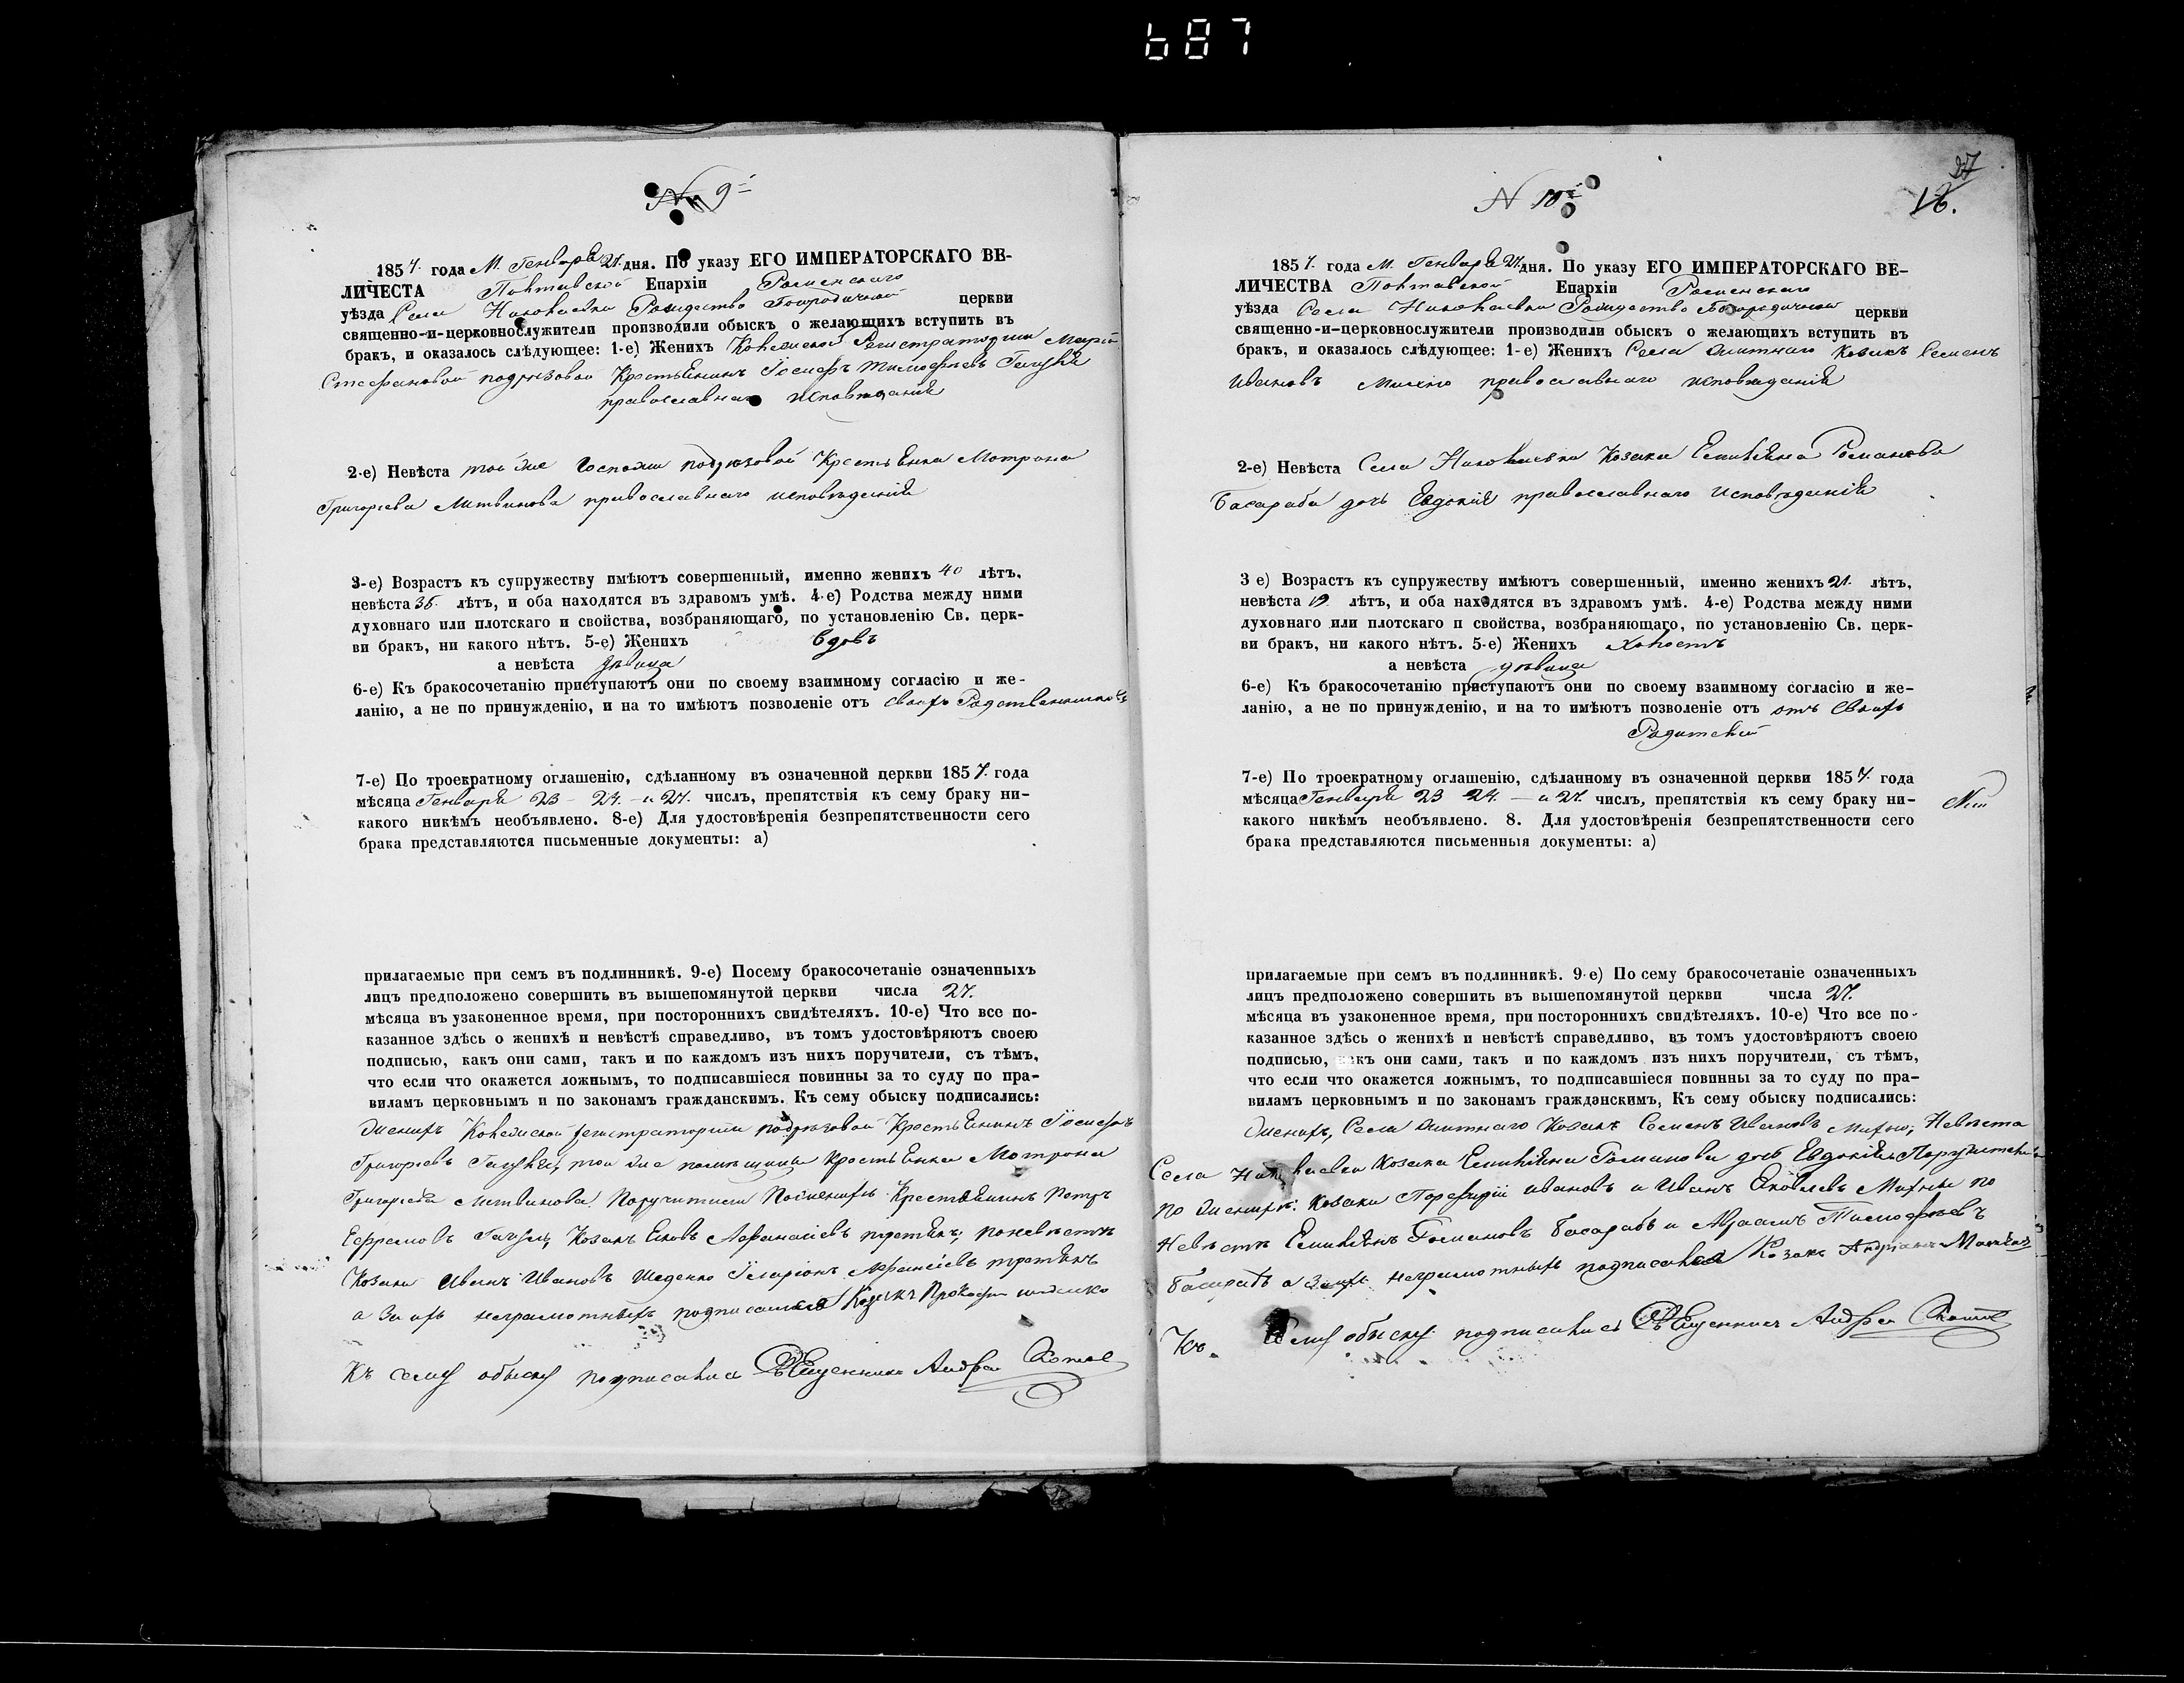 687
№ 9й
1857. года М. Генваря 27. дня. По указу ЕГО ИМПЕРАТОРСКАГО ВЕ-
ЛИЧЕСТА Полтавской Епархіи Роменскаго
уѣзда Села Николаевки Рождество Богородичной церкви
священно-и-церковнослужители производили обыскъ о желающихъ вступить въ
бракъ, и оказалось слѣдующее: 1-е) Женихъ Колежской Регистраторши Маріи
Стефановой подрызовой Крестьянинъ Іосифъ Тимофѣевъ
православнаго исповѣданія
2-е) Невѣста той же Госпожи подрызовой Крестьянка Мотрона
Григорьева Литвинова православнаго исповѣданія
3-е) Возрастъ къ супружеству имѣютъ совершенный, именно женихъ 40 лѣтъ,
невѣста 35. лѣтъ, и оба находятся въ здравомъ умѣ. 4-е) Родства между ними
духовнаго или плотскаго и свойства, возбраняющаго, по установленію Св. церк-
ви бракъ, ни какого нѣтъ. 5-е) Женихъ вдовъ
а невѣста дѣвица
6-е) Къ бракосочетанію приступаютъ они по своему взаимному согласію и же-
ланію, а не по принужденію, и на то имѣютъ позволеніе отъ своихъ Родственниковъ
7-е) По троекратному оглашенію, сдѣланному въ означенной церкви 1857. года
мѣсяца Генваря 23 - 24. - и 27. числъ, препятствія къ сему браку ни-
какого никѣмъ необъявлено. 8-е) Для удостовѣренія безпрепятственности сего
брака представляются письменные документы: а)
прилагаемые при семъ въ подлинникѣ. 9-е) Посему бракосочетаніе означенныхъ
лицъ предположено совершить въ вышепомянутой церкви числа 27.
мѣсяца въ узаконенное время, при постороннихъ свидѣтеляхъ. 10-е) Что все по-
казанное здѣсь о женихѣ и невѣстѣ справедливо, въ томъ удостовѣряютъ своею
подписью, какъ они сами, такъ и по каждомъ изъ нихъ поручители, съ тѣмъ,
что если что окажется ложнымъ, то подписавшіеся повинны за то суду по пра-
виламъ церковнымъ и по законамъ гражданскимъ. Къ сему обыску подписались:
Женихъ Колежской регистраторши подрызовой Крестьянинъ Іосифъ
Григорьевъ той же помѣщицы Крестьянка Мотрона
Григорьева Литвинова. Поручители По женихѣ Крестьянинъ Петръ
Ефремовъ Козакъ Яковъ Афанасіевъ третякъ; по невѣстѣ
Козаки Иванъ Ивановъ Шеденко Іларіонъ Афанасіевъ третякъ
а за ихъ неграмотныхъ подписался Козакъ Прокофій
Къ сему обыску подписался Священникъ Андрей
№ 10й
27
12.
1857. года М. Генваря 27. дня. По указу ЕГО ИМПЕРАТОРСКАГО ВЕ-
ЛИЧЕСТВА Полтавской Епархіи Роменскаго
уѣзда Села Николаевки Рождество Богородичной церкви
священно-и-церковнослужители производили обыскъ о желающихъ вступить въ
бракъ, и оказалось слѣдующее: 1-е) Женихъ Села Козакъ Семенъ
Ивановъ Михно православнаго исповѣданія
2-е) Невѣста Села Николаевки Козака Емиліяна Романова
Басараба дочь Евдокія православнаго исповѣданія
3 е) Возрастъ къ супружеству имѣютъ совершенный, именно женихъ 21. лѣтъ,
невѣста 19 лѣтъ, и оба находятся въ здравомъ умѣ. 4-е) Родства между ними
духовнаго или плотскаго п свойства, возбраняющаго, по установленію Св. церк-
ви бракъ, ни какого нѣтъ. 5-е) Женихъ холостъ
а невѣста дѣвица
6-е) Къ бракосочетанію приступаютъ они по своему взаимному согласію и же-
ланію, а не по принужденію, и на то имѣютъ позволеніе отъ отъ своихъ
Родителей
7-е) По троекратному оглашенію, сдѣланному въ означенной церкви 1857. года
мѣсяца Генваря 23 24. - и 27. числъ, препятствія къ сему браку ни-
какого никѣмъ необъявлено. 8. Для удостовѣренія безпрепятственности сего
брака представляются письменныя документы: а)
прилагаемые при семъ въ подлинникѣ. 9-е) По сему бракосочетаніе означенныхъ
лицъ предположено совершить въ вышепомянутой церкви числа 27.
мѣсяца въ узаконенное время, при постороннихъ свидѣтеляхъ. 10-е) Что все по-
казанное здѣсь о женихѣ и невѣстѣ справедливо, въ томъ удостовѣряютъ своею
подписью, какъ они сами, такъ и по каждомъ изъ нихъ поручители, съ тѣмъ,
что если что окажется ложнымъ, то подписавшіеся повинны за то суду по пра-
виламъ церковнымъ и по законамъ гражданскимъ, Къ сему обыску подписались:
Женихъ, Села Козакъ Семенъ Ивановъ Михно; Невѣста
Села Николаевки Козака Емиліяна Романова дочь Евдокія Поручители
по женихѣ: Козаки Порфирій Ивановъ и Иванъ Яковлевъ Михны по
Невѣстѣ Емиліянъ Романовъ Басарабъ и Авраамъ Тимофѣевъ
Басарабъ а за ихъ неграмотныхъ подписался Козакъ Андріанъ
Къ Сему обыску подписался Священникъ Андрей